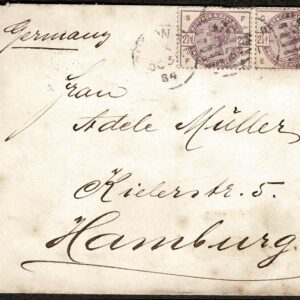 Germany
OC 3
84
S F
S
2½D
F
F
Frau
Adele Müller
Kielerstr. 5.
Hamburg.